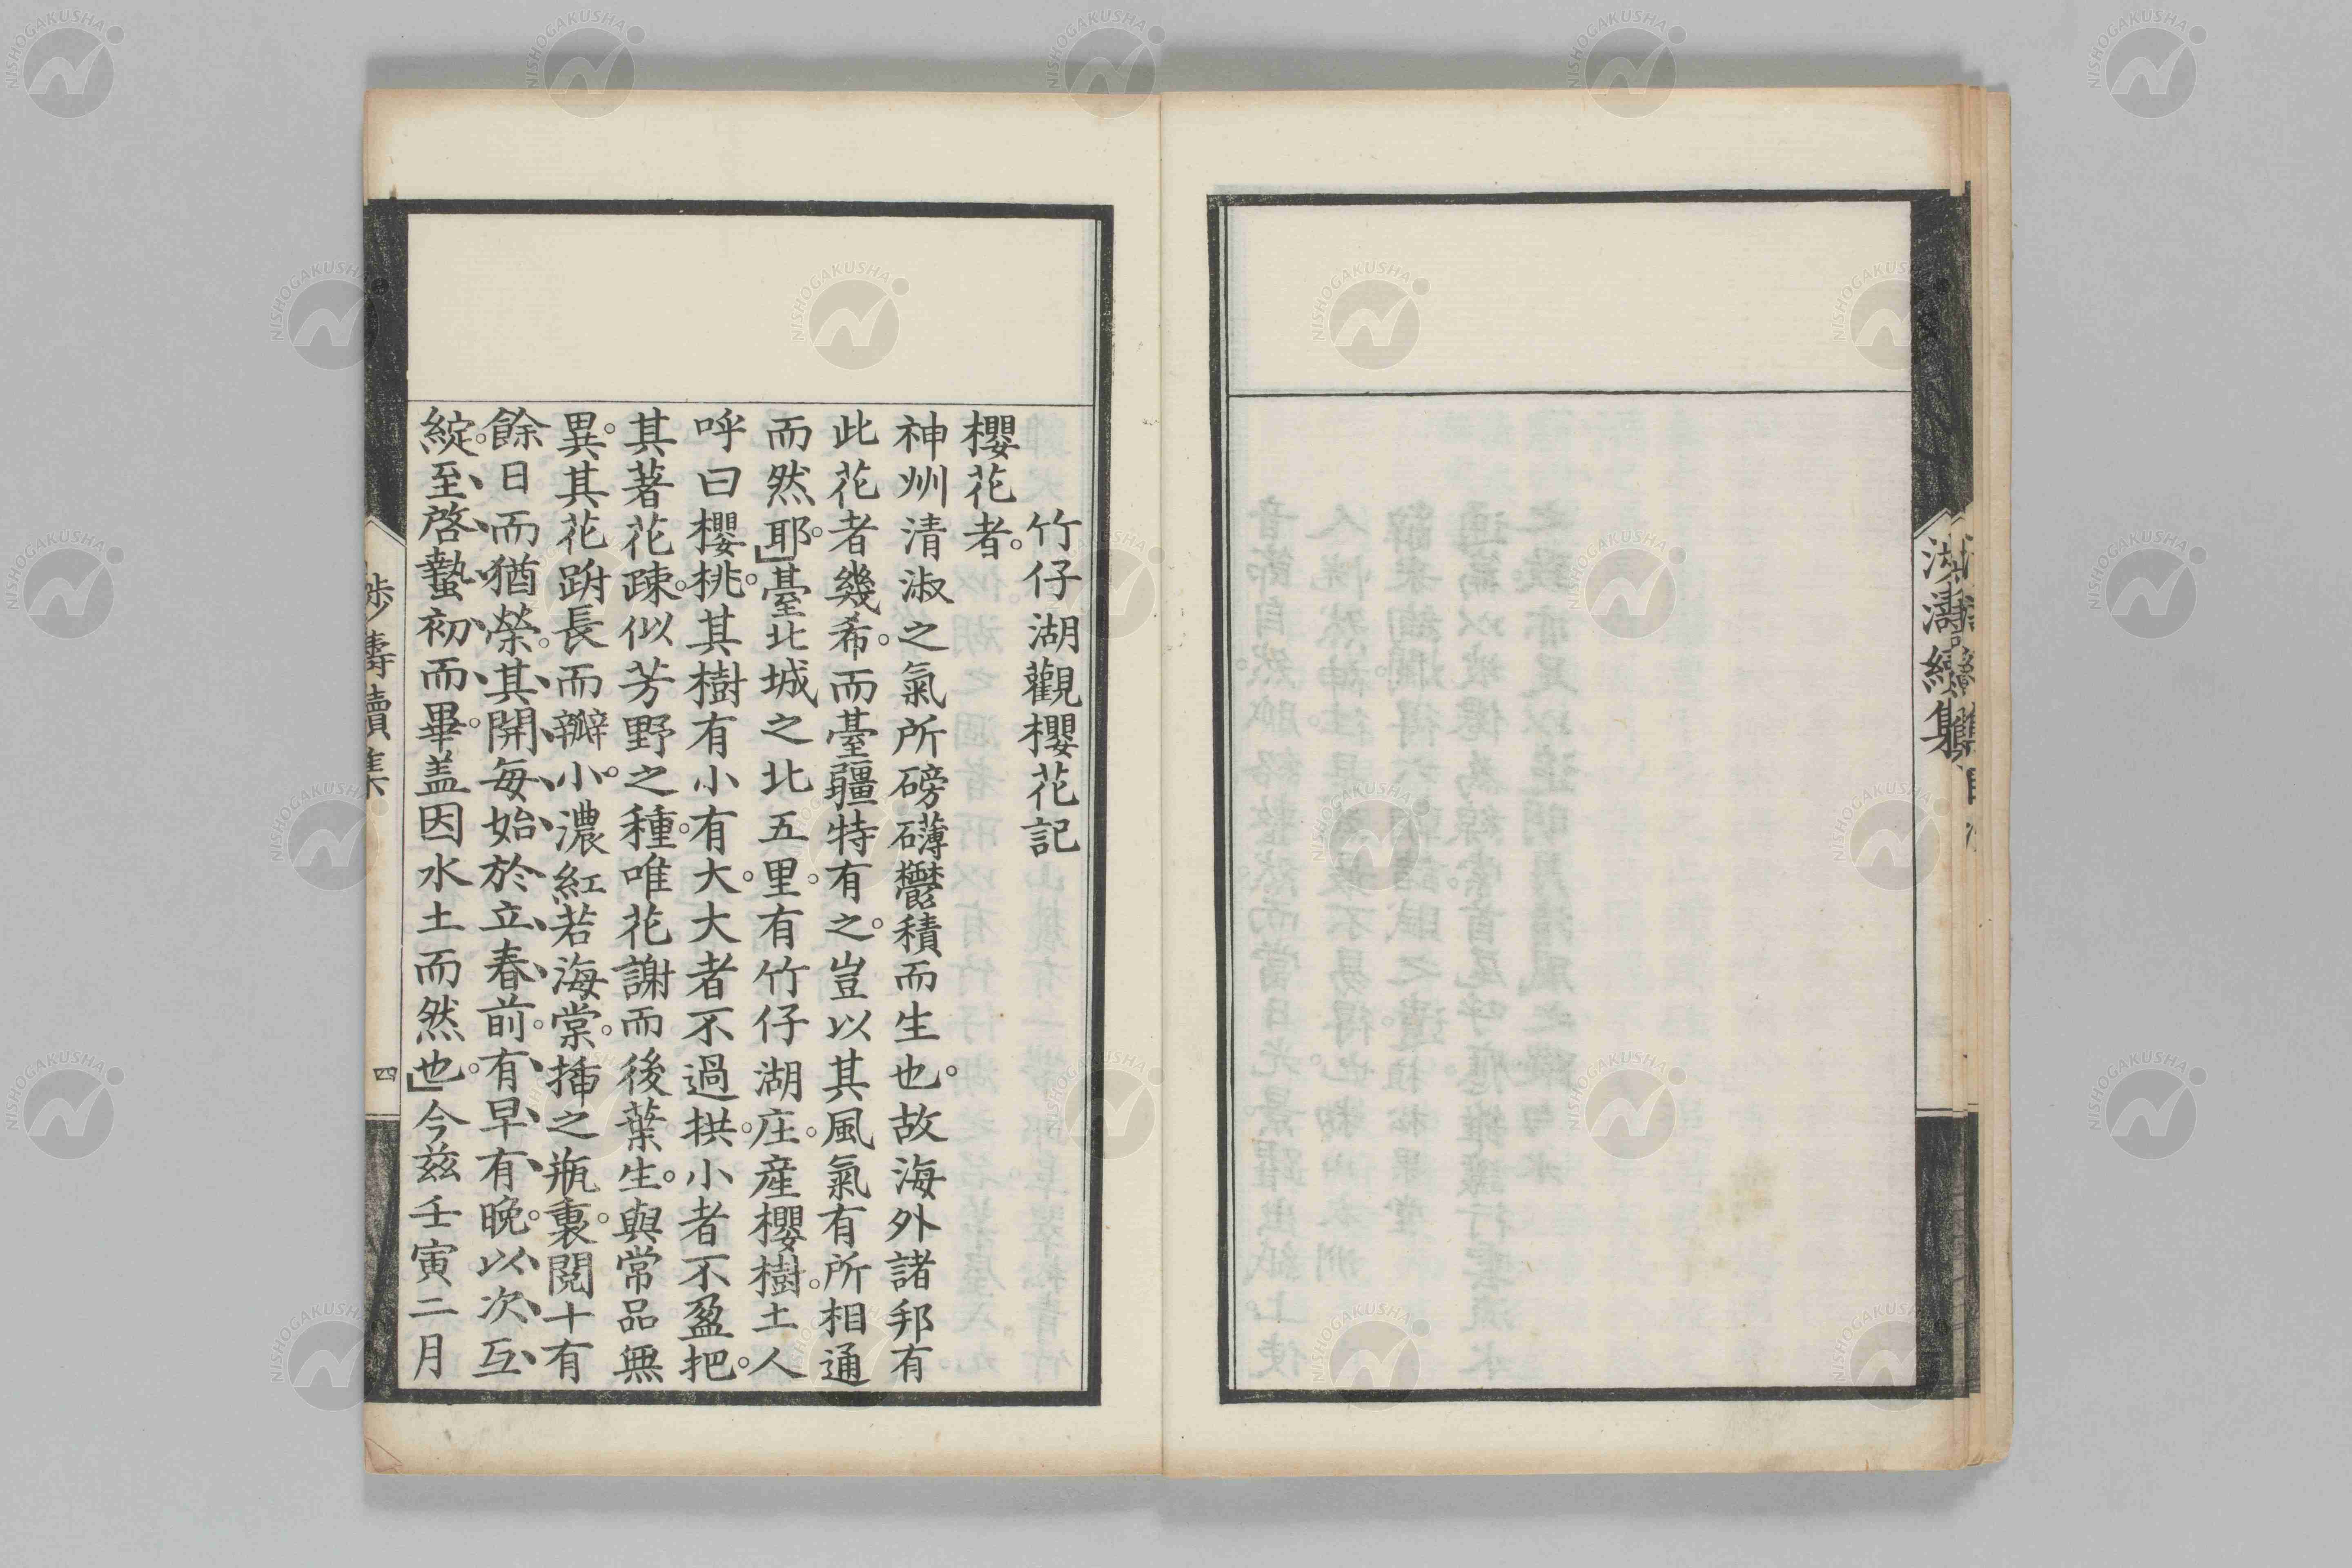 竹仔湖觀櫻花記
櫻花者。
神州清淑之氣所磅礴鬱積而生也。故海外諸邦有
此花者幾希。而臺疆特有之。豈以其風氣有所相通
而然耶。」臺北城之北五里。有竹仔湖庄。産櫻樹。土人
呼曰櫻桃。其樹有小有大。大者不過拱。小者不盈把。
其著花疎。似芳野之種。唯花謝而後葉生。與常品無
異。其花跗長而瓣小。濃紅若海棠。揷之瓶裏。閲十有
餘日而猶榮。其開每始於立春前。有早有晩。以次互
綻。至啓蟄初而畢。盖因水土而然也。」今茲壬寅二月
四
湖濤續集
NISHOGAKUSHA